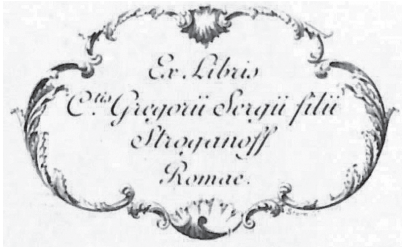 Ex Libris
Ctis Gregorii Sergii filii
Stroganoff
Romae.